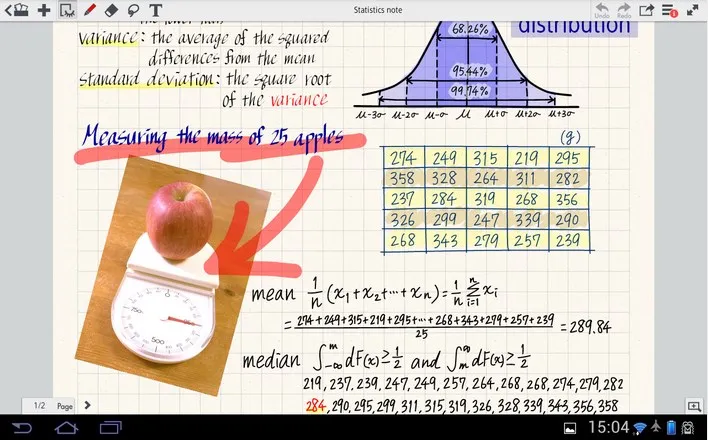 Statistics note
variance: the average of the squared
differences from the mean
standard deviation: the square root
of the variance
distribution
68.26%
95.44%
99.74%
μ-3σ μ-2σ μ-σ μ μ+σ μ+2σ μ+3σ
Measuring the mass of 25 apples
(g)
274 249 315 219 295
358 328 264 311 282
237 284 319 268 356
326 299 247 339 290
268 343 279 257 239
0
750
500
mean 1/n (x₁+x₂+···+xₙ) = 1/n Σⁿᵢ₌₁ xᵢ
= 274+249+315+219+295+···+268+343+279+257+239 / 25 = 289.84
median ∫₋∞ᵐ dF(x) ≥ 1/2 and ∫ₘ∞ dF(x) ≥ 1/2
219, 237, 239, 247, 249, 257, 264, 268, 268, 274, 279, 282
284, 290, 295, 299, 311, 315, 319, 326, 328, 339, 343, 356, 358
1/2 Page
15:04